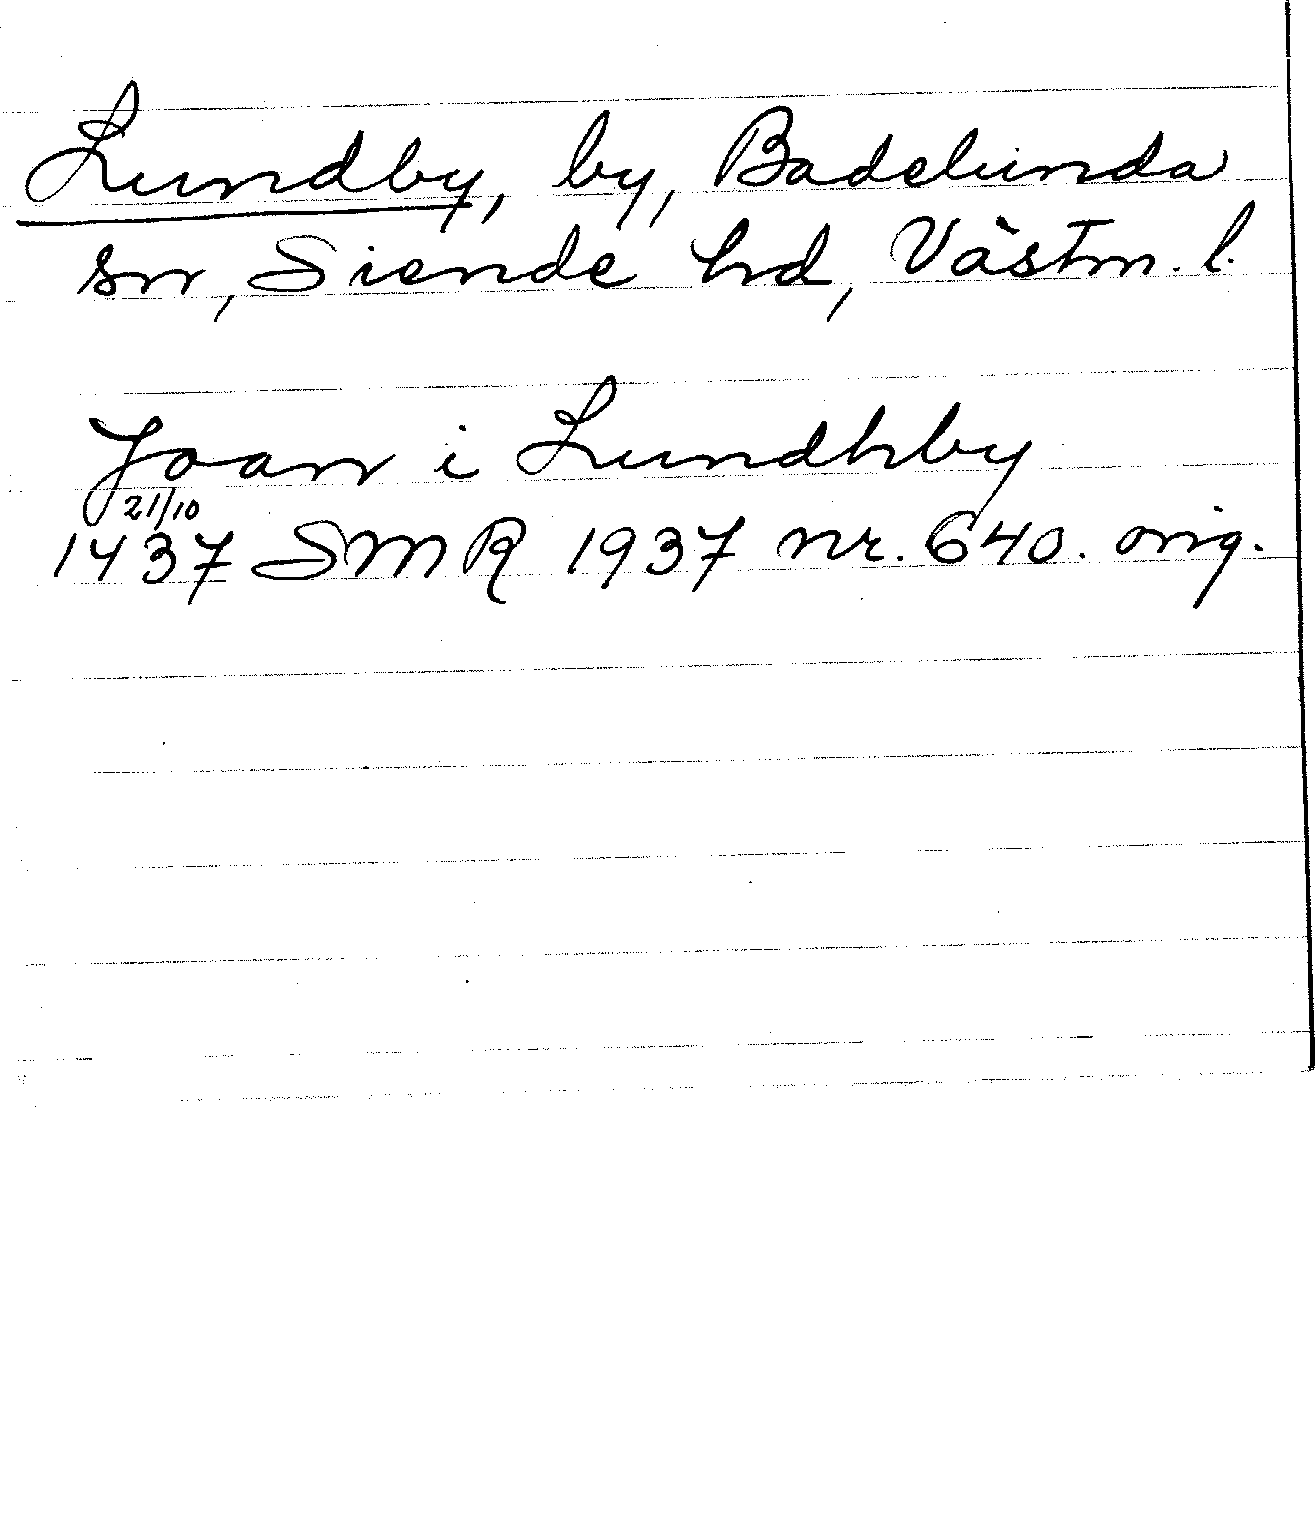 Lundby, by, Badelunda
sn, Siende hd, Västm. l.
Joan i Lundhby
21/10
1437 SMR 1937 nr. 640. orig.